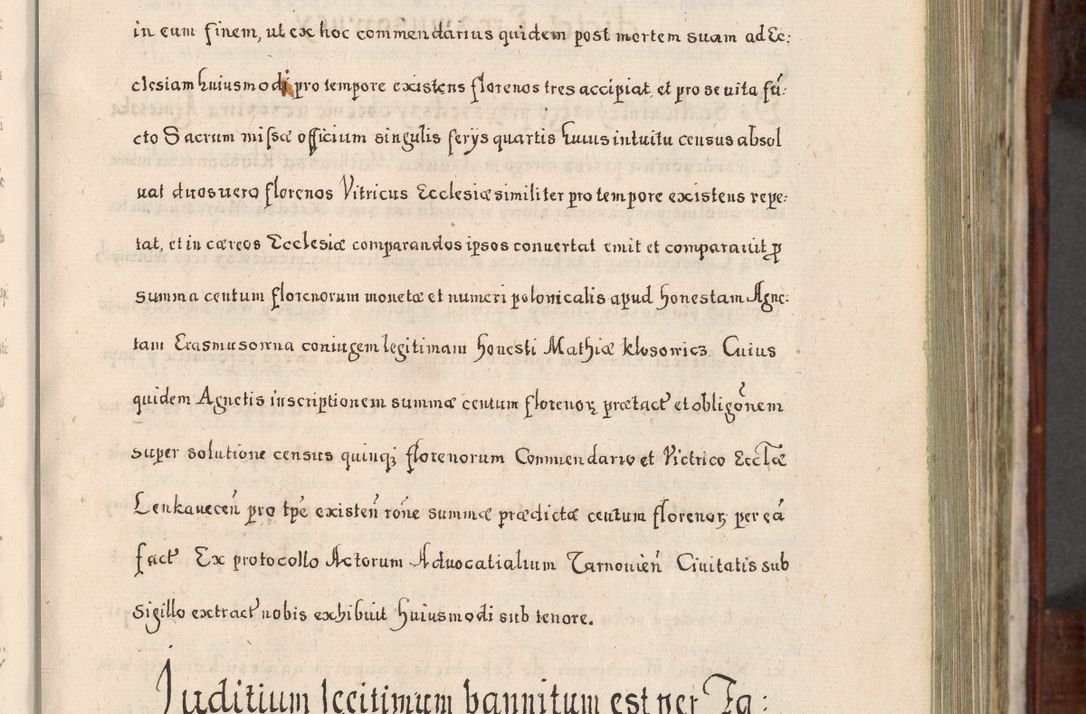 in eum finem, ut ex hoc commendarius quidem post mortem suam ad Ec:
clesiam huiusmodi pro tempore existens florenos tres accipiat, et pro se vita fũ:
cto Sacrum missæ officium singulis ferÿs quartis huius intuitu census absol
uat duos uero florenos Vitricus Ecclesiæ similiter pro tempore existens repe:
tat, et in cæreos Ecclesiæ comparandos ipsos conuertat emit et comparauit ꝓ
summa centum florenorum monetæ et numeri polonicalis apud honestam Agne:
tam Erasmusowna coniugem legitimam honesti Mathiæ klosowicz. Cuius
quidem Agnetis inscriptionem summæ centum florenoꝝ prætact et obligõnem
super solutione census quinqꝫ florenorum Commendario et Victrico Ecclæ
Lenkavecen̄ pro tpẽ existen̄ rõne summæ prædictæ centum florenoꝝ per eã
fact Ex protocollo Actorum Aduocatialium Tarnouien̄ Ciuitatis sub
Sigillo extract nobis exhibuit huiusmodi sub tenore.
Juditium legitimum bannitum est per Ja: